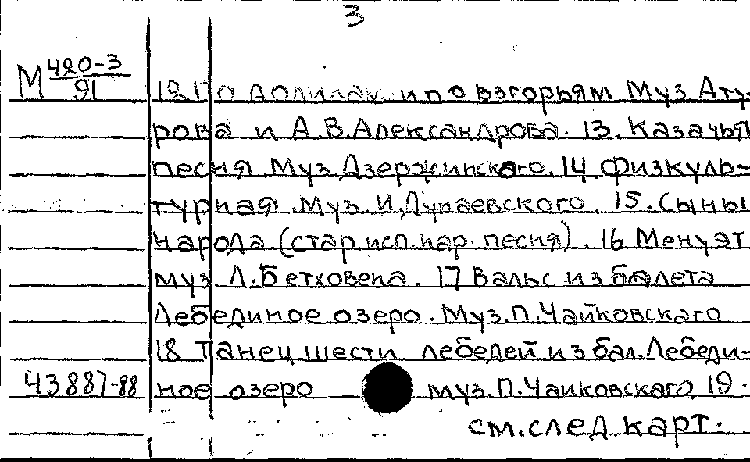 3
М 420-3/91
12 По долинам и по взгорьям Муз Ату-
рова и А.В.Александрова. 13. Казачья
песня Муз Дзержинского. 14 Физкуль-
турная Муз. И.Дунаевского. 15. Сыны
народа (стар исп. нар. песня). 16 Менуэт
муз Л.Бетховена. 17 Вальс из балета
Лебединое озеро. Муз. П.Чайковского
18 Танец шести лебедей из бал. Лебеди-
43887-88 ное озеро муз. П.Чайковского 19.
см. след. карт.